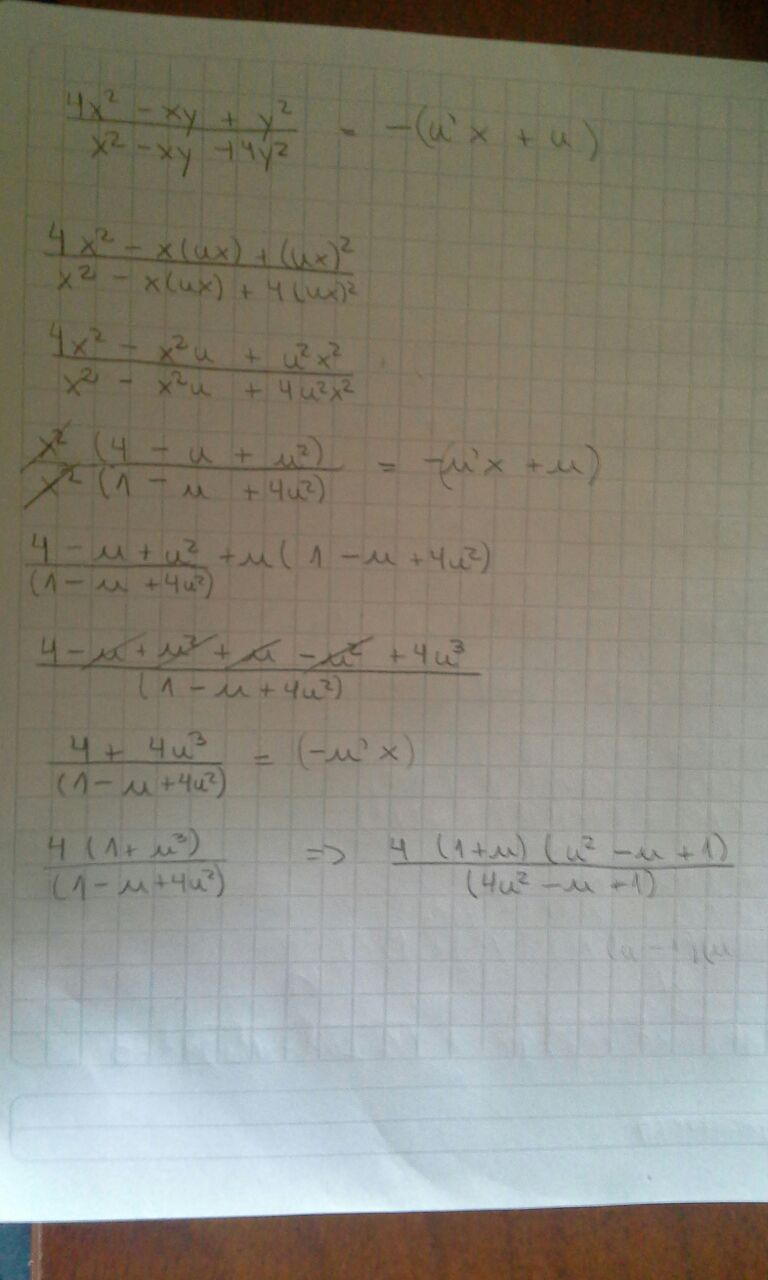 4x² - xy + y² / x² - xy + 4y² = -(u'x + u)
4x² - x(ux) + (ux)² / x² - x(ux) + 4(ux)²
4x² - x²u + u²x² / x² - x²u + 4u²x²
x² (4 - u + u²) / x² (1 - u + 4u²) = -(u'x + u)
4 - u + u² / (1 - u + 4u²) + u(1 - u + 4u²)
4 - u + u² + u - u² + 4u³ / (1 - u + 4u²)
4 + 4u³ / (1 - u + 4u²) = (-u'x)
4(1 + u³) / (1 - u + 4u²) => 4 (1+u) (u² - u + 1) / (4u² - u + 1)